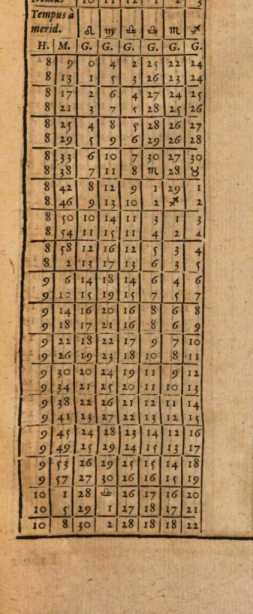 10 11 12 1 2 3
Tempus à
merid. ♌ ♍ ♎ ♎ ♏ ♐
H. M. G. G. G. G. G. G.
8 9 0 4 2 25 22 24
8 13 1 5 3 26 23 24
8 17 2 6 4 27 24 25
8 21 3 7 5 28 25 26
8 25 4 8 5 28 26 27
8 29 5 9 6 29 26 28
8 33 6 10 7 30 27 30
8 38 7 11 8 ♏ 28 ♉
8 42 8 12 9 1 29 1
8 46 9 13 10 2 ♐ 2
8 50 10 14 11 3 1 3
8 54 11 15 11 4 2 4
8 58 12 16 12 5 3 4
8 2 13 17 13 6 3 5
9 6 14 18 14 6 4 6
9 10 15 19 15 7 5 7
9 14 16 20 16 8 6 8
9 18 17 21 16 8 6 9
9 22 18 22 17 9 7 10
9 26 19 23 18 10 8 11
9 30 20 24 19 11 9 12
9 34 21 25 20 11 10 13
9 38 22 26 21 12 11 14
9 41 23 27 22 13 12 15
9 45 24 28 23 14 12 16
9 49 25 29 24 15 13 17
9 53 26 29 25 15 14 18
9 57 27 30 26 16 15 19
10 1 28 ♎ 26 17 16 20
10 5 29 1 27 18 17 21
10 8 30 2 28 18 18 22